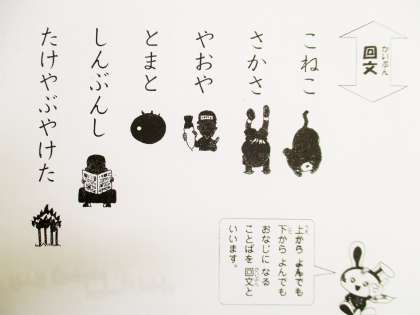 回文
かいぶん
こねこ
さかさ
やおや
とまと
しんぶんし
たけやぶやけた
上から よんでも
下から よんでも
おなじに なる
ことばを 回文と
いいます。